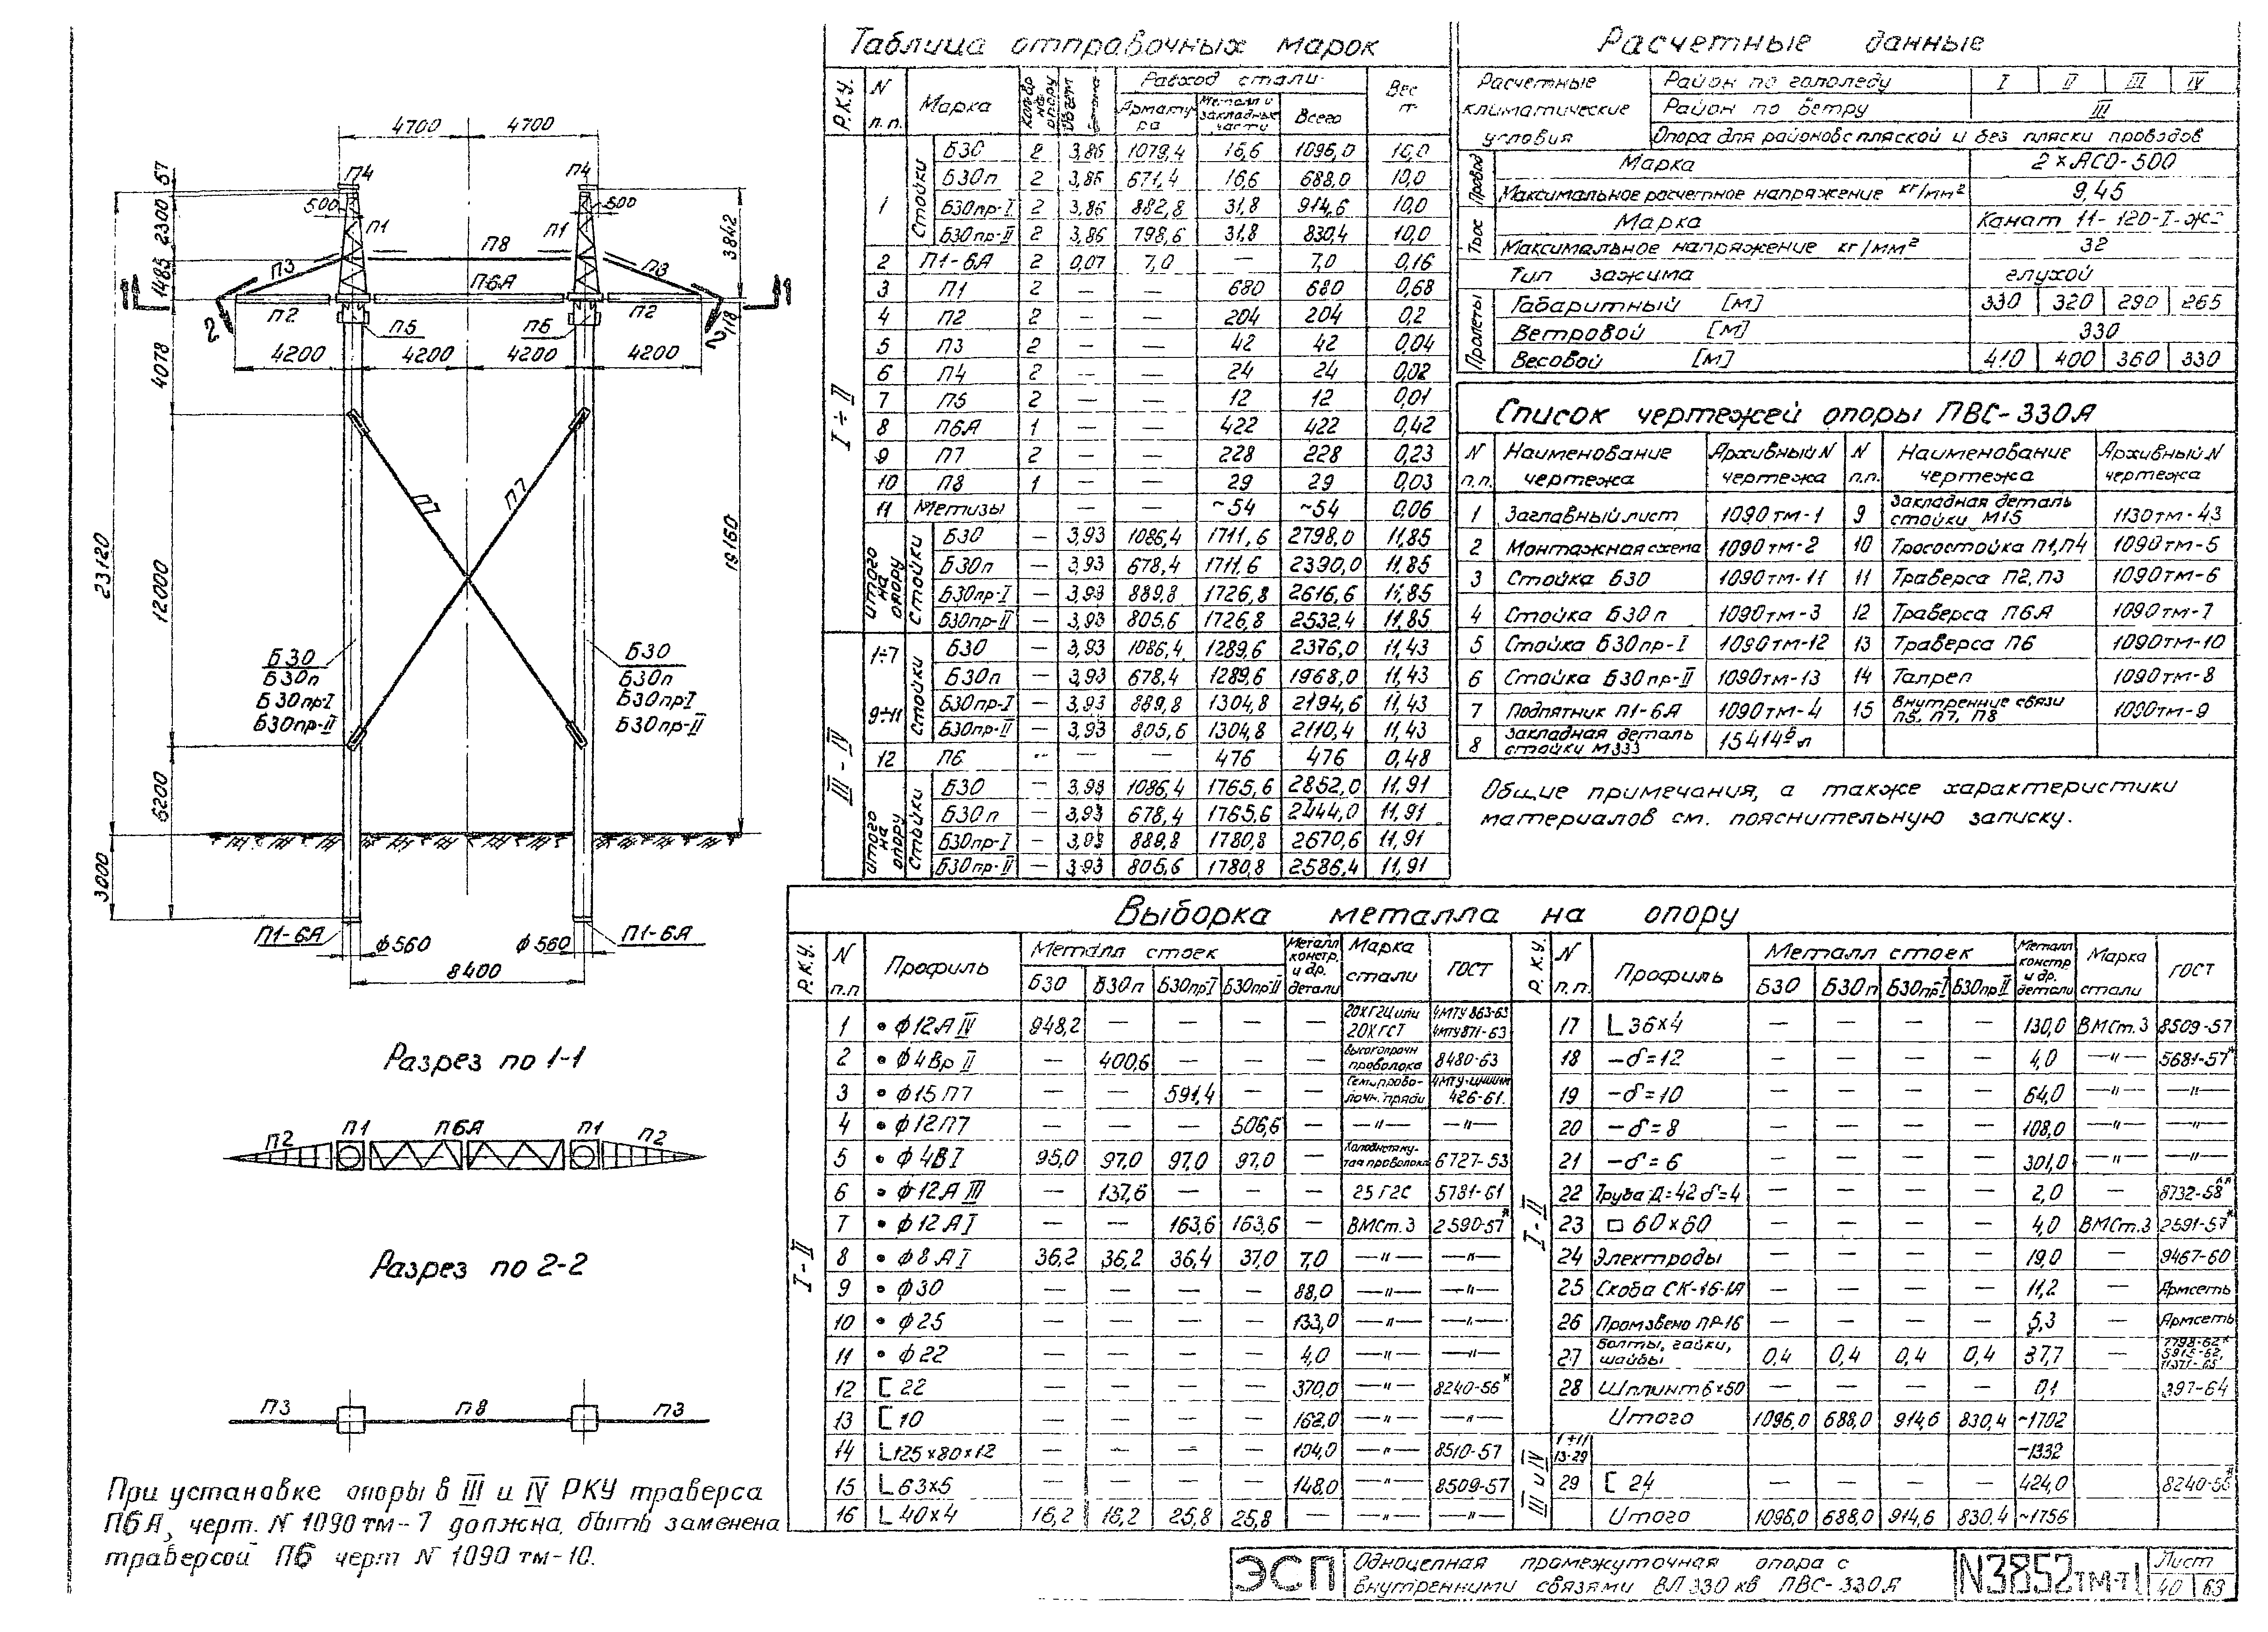 4700 4700
П4 П4
57
2300
1485
4078
12000
6200
3000
23120
500 500
П1 П1
П8
П3 П3
П6А
1 1
П2 П2
П5 П5
2 2
118
3842
19160
4200 4200 4200 4200
П7 П7
Б30 Б30
Б30п Б30п
Б30пр-I Б30прI
Б30пр-II Б30пр-II
П1-6А П1-6А
ф560 ф560
8400
Разрез по 1-1
П2 П1 П6А П1 П2
Разрез по 2-2
П3 П8 П3
При установке опоры в III и IV РКУ траверса
П6А, черт. N 1090тм-7 должна быть заменена
траверсой П6 черт N 1090тм-10.
Таблица отправочных марок
Р.К.У. N п.п. Марка Кол. бр на опору Объем бетона Расход стали Вес т
Арматура Металл и закладные части Всего
I÷II
1 Стойки Б30 2 3,86 1079,4 16,6 1096,0 10,0
Б30п 2 3,86 671,4 16,6 688,0 10,0
Б30пр-I 2 3,86 882,8 31,8 914,6 10,0
Б30пр-II 2 3,86 798,6 31,8 830,4 10,0
2 П1-6А 2 0,07 7,0 — 7,0 0,16
3 П1 2 — — 680 680 0,68
4 П2 2 — — 204 204 0,2
5 П3 2 — — 42 42 0,04
6 П4 2 — — 24 24 0,02
7 П5 2 — — 12 12 0,01
8 П6А 1 — — 422 422 0,42
9 П7 2 — — 228 228 0,23
10 П8 1 — — 29 29 0,03
11 Метизы — — ~54 ~54 0,06
Итого на опору Стойки Б30 — 3,93 1086,4 1711,6 2798,0 11,85
Б30п — 3,93 678,4 1711,6 2390,0 11,85
Б30пр-I — 3,93 889,8 1726,8 2616,6 11,85
Б30пр-II — 3,93 805,6 1726,8 2532,4 11,85
III-IV
1÷7 9÷11 Стойки Б30 — 3,93 1086,4 1289,6 2376,0 11,43
Б30п — 3,93 678,4 1289,6 1968,0 11,43
Б30пр-I — 3,93 889,8 1304,8 2194,6 11,43
Б30пр-II — 3,93 805,6 1304,8 2110,4 11,43
12 П6 — — — 476 476 0,48
Итого на опору Стойки Б30 — 3,93 1086,4 1765,6 2852,0 11,91
Б30п — 3,93 678,4 1765,6 2444,0 11,91
Б30пр-I — 3,93 889,8 1780,8 2670,6 11,91
Б30пр-II — 3,93 805,6 1780,8 2586,4 11,91
Расчетные данные
Расчетные климатические условия Район по гололеду I II III IV
Район по ветру III
Опора для районов с пляской и без пляски проводов
Провод Марка 2×АСО-500
Максимальное расчетное напряжение кг/мм² 9,45
Трос Марка Канат 11-120-I-
Максимальное напряжение кг/мм² 32
Тип зажима глухой
Пролеты Габаритный [м] 330 320 290 265
Ветровой [м] 330
Весовой [м] 410 400 360 330
Список чертежей опоры ПВС-330А
N п.п. Наименование чертежа Архивный N чертежа N п.п. Наименование чертежа Архивный N чертежа
1 Заглавный лист 1090тм-1 9 Закладная деталь стойки М15 1130тм-43
2 Монтажная схема 1090тм-2 10 Тросостойка П1,П4 1090тм-5
3 Стойка Б30 1090тм-11 11 Траверса П2,П3 1090тм-6
4 Стойка Б30п 1090тм-3 12 Траверса П6А 1090тм-7
5 Стойка Б30пр-I 1090тм-12 13 Траверса П6 1090тм-10
6 Стойка Б30пр-II 1090тм-13 14 Талреп 1090тм-8
7 Подпятник П1-6А 1090тм-4 15 Внутренние связи П5, П7, П8 1090тм-9
8 Закладная деталь стойки М333
Общие примечания, а также характеристики
материалов см. пояснительную записку.
Выборка металла на опору
Р.К.У. N п.п Профиль Металл стоек Металл констр. и др. детали Марка стали ГОСТ
Б30 Б30п Б30пр-I Б30пр-II
I-II
1 • ф12АIV 948,2 — — — — 20ХГ2Ц или 20ХГСТ 4МТУ863-63 4МТУ871-63
2 • ф4ВрII — 400,6 — — — Высокопрочн проволока 8480-63
3 • ф15П7 — — 591,4 — — Семипроволочн. пряди 426-61.
4 • ф12П7 — — — 506,6 — —"— —"—
5 • ф4ВI 95,0 97,0 97,0 97,0 — Холоднотянутая проволока 6727-53
6 • ф12АIII — 137,6 — — — 25Г2С 5781-61
7 • ф12АI — — 163,6 163,6 — ВМСт.3 2590-57*
8 • ф8АI 36,2 36,2 36,4 37,0 7,0 —"— —"—
9 • ф30 — — — — 88,0 —"— —"—
10 • ф25 — — — — 133,0 —"— —"—
11 • ф22 — — — — 4,0 —"— —"—
12 [ 22 — — — — 370,0 —"— 8240-56*
13 [ 10 — — — — 162,0 —"— —"—
14 L125×80×12 — — — — 104,0 —"— 8510-57
15 L63×5 — — — — 148,0 —"— 8509-57
16 L40×4 16,2 16,2 25,8 25,8 — —"— —"—
Р.К.У. N п.п. Профиль Металл стоек Металл констр и др. детали Марка стали ГОСТ
Б30 Б30п Б30пр-I Б30пр II
I-II
17 L36×4 — — — — 130,0 ВМСт.3 8509-57
18 —δ=12 — — — — 4,0 —"— 5681-57*
19 —δ=10 — — — — 64,0 —"— —"—
20 —δ=8 — — — — 108,0 —"— —"—
21 —δ=6 — — — — 301,0 —"— —"—
22 Труба Д=42 δ=4 — — — — 2,0 — 8732-58**
23 □ 60×60 — — — — 4,0 ВМСт.3 2591-57*
24 Электроды — — — — 19,0 — 9467-60
25 Скоба СК-16-1А — — — — 11,2 — Армсеть
26 Промзвено ПР-16 — — — — 5,3 — Армсеть
27 Болты, гайки, шайбы 0,4 0,4 0,4 0,4 37,7 — 7798-62* 5915-62,
28 Шплинт 6×50 — — — — 0,1 397-64
Итого 1096,0 688,0 914,6 830,4 ~1702
III и IV
1÷11 13-29 ~1332
29 [ 24 — — — — 424,0 8240-56*
Итого 1096,0 688,0 914,6 830,4 ~1756
ЭСП Одноцепная промежуточная опора с
внутренними связями ВЛ 330 кв ПВС-330А
N3852тм-т1 Лист
40 63